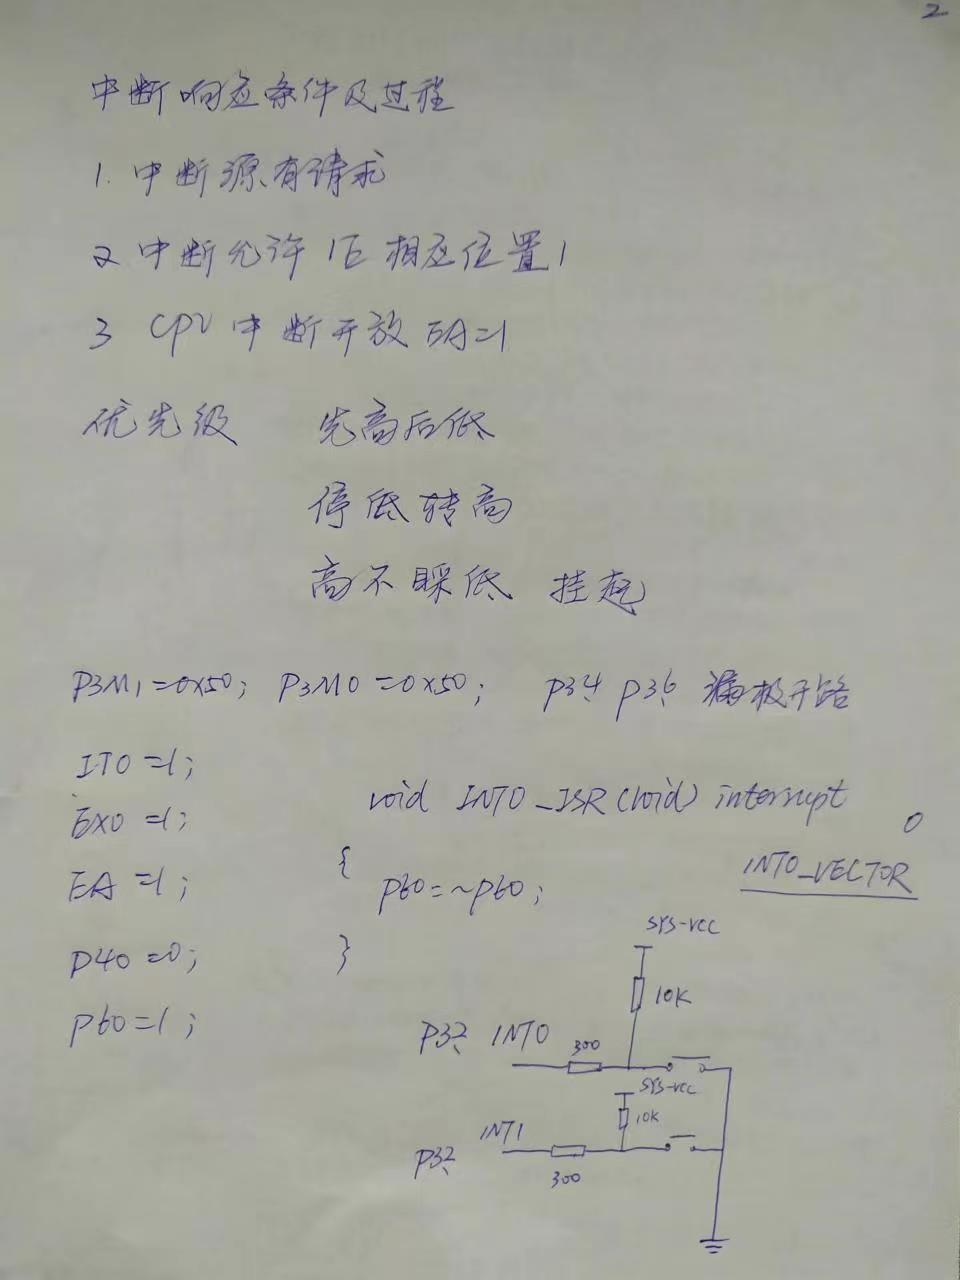 2
中断响应条件及过程
1. 中断源有请求
2 中断允许 IE 相应位置1
3 CPU 中断开放 EA=1
优先级 先高后低
停低转高
高不睬低 挂起
P3M1=0x50; P3M0=0x50; P3.4 P3.6 漏极开路
IT0=1;
EX0=1;
EA=1;
P40=0;
P60=1;
void INT0_ISR(void) interrupt 0
INT0_VECTOR
{
P60=~P60;
}
SYS-VCC
10K
P3.2 INT0 300
SYS-VCC
10K
P3.2 INT1
300